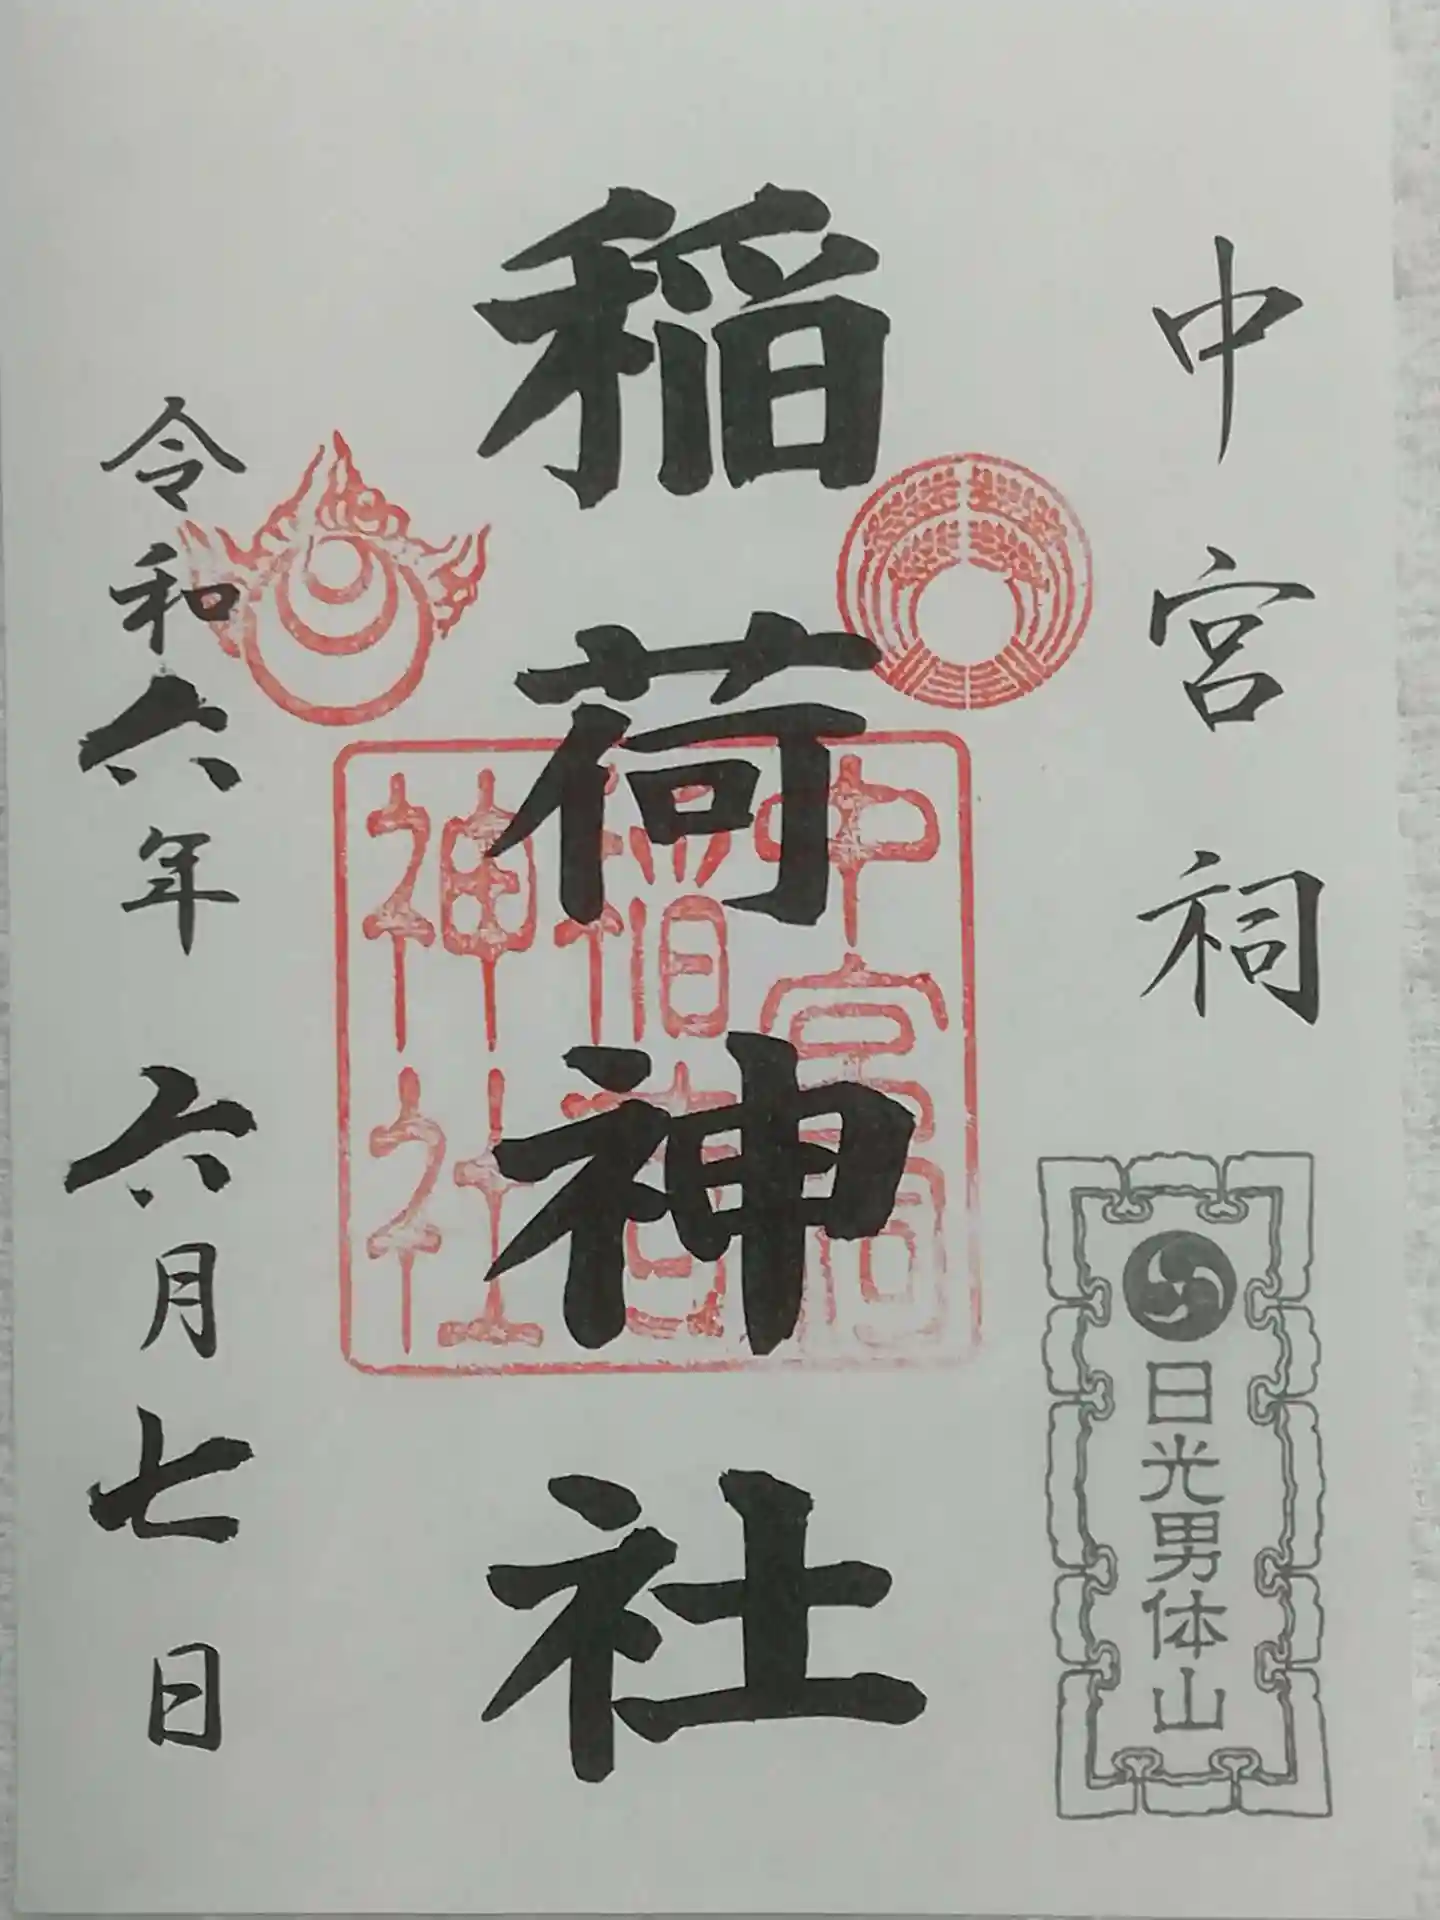 中宮祠
日光男体山
稲荷神社
中宮祠
稲荷
神社
令和六年六月七日